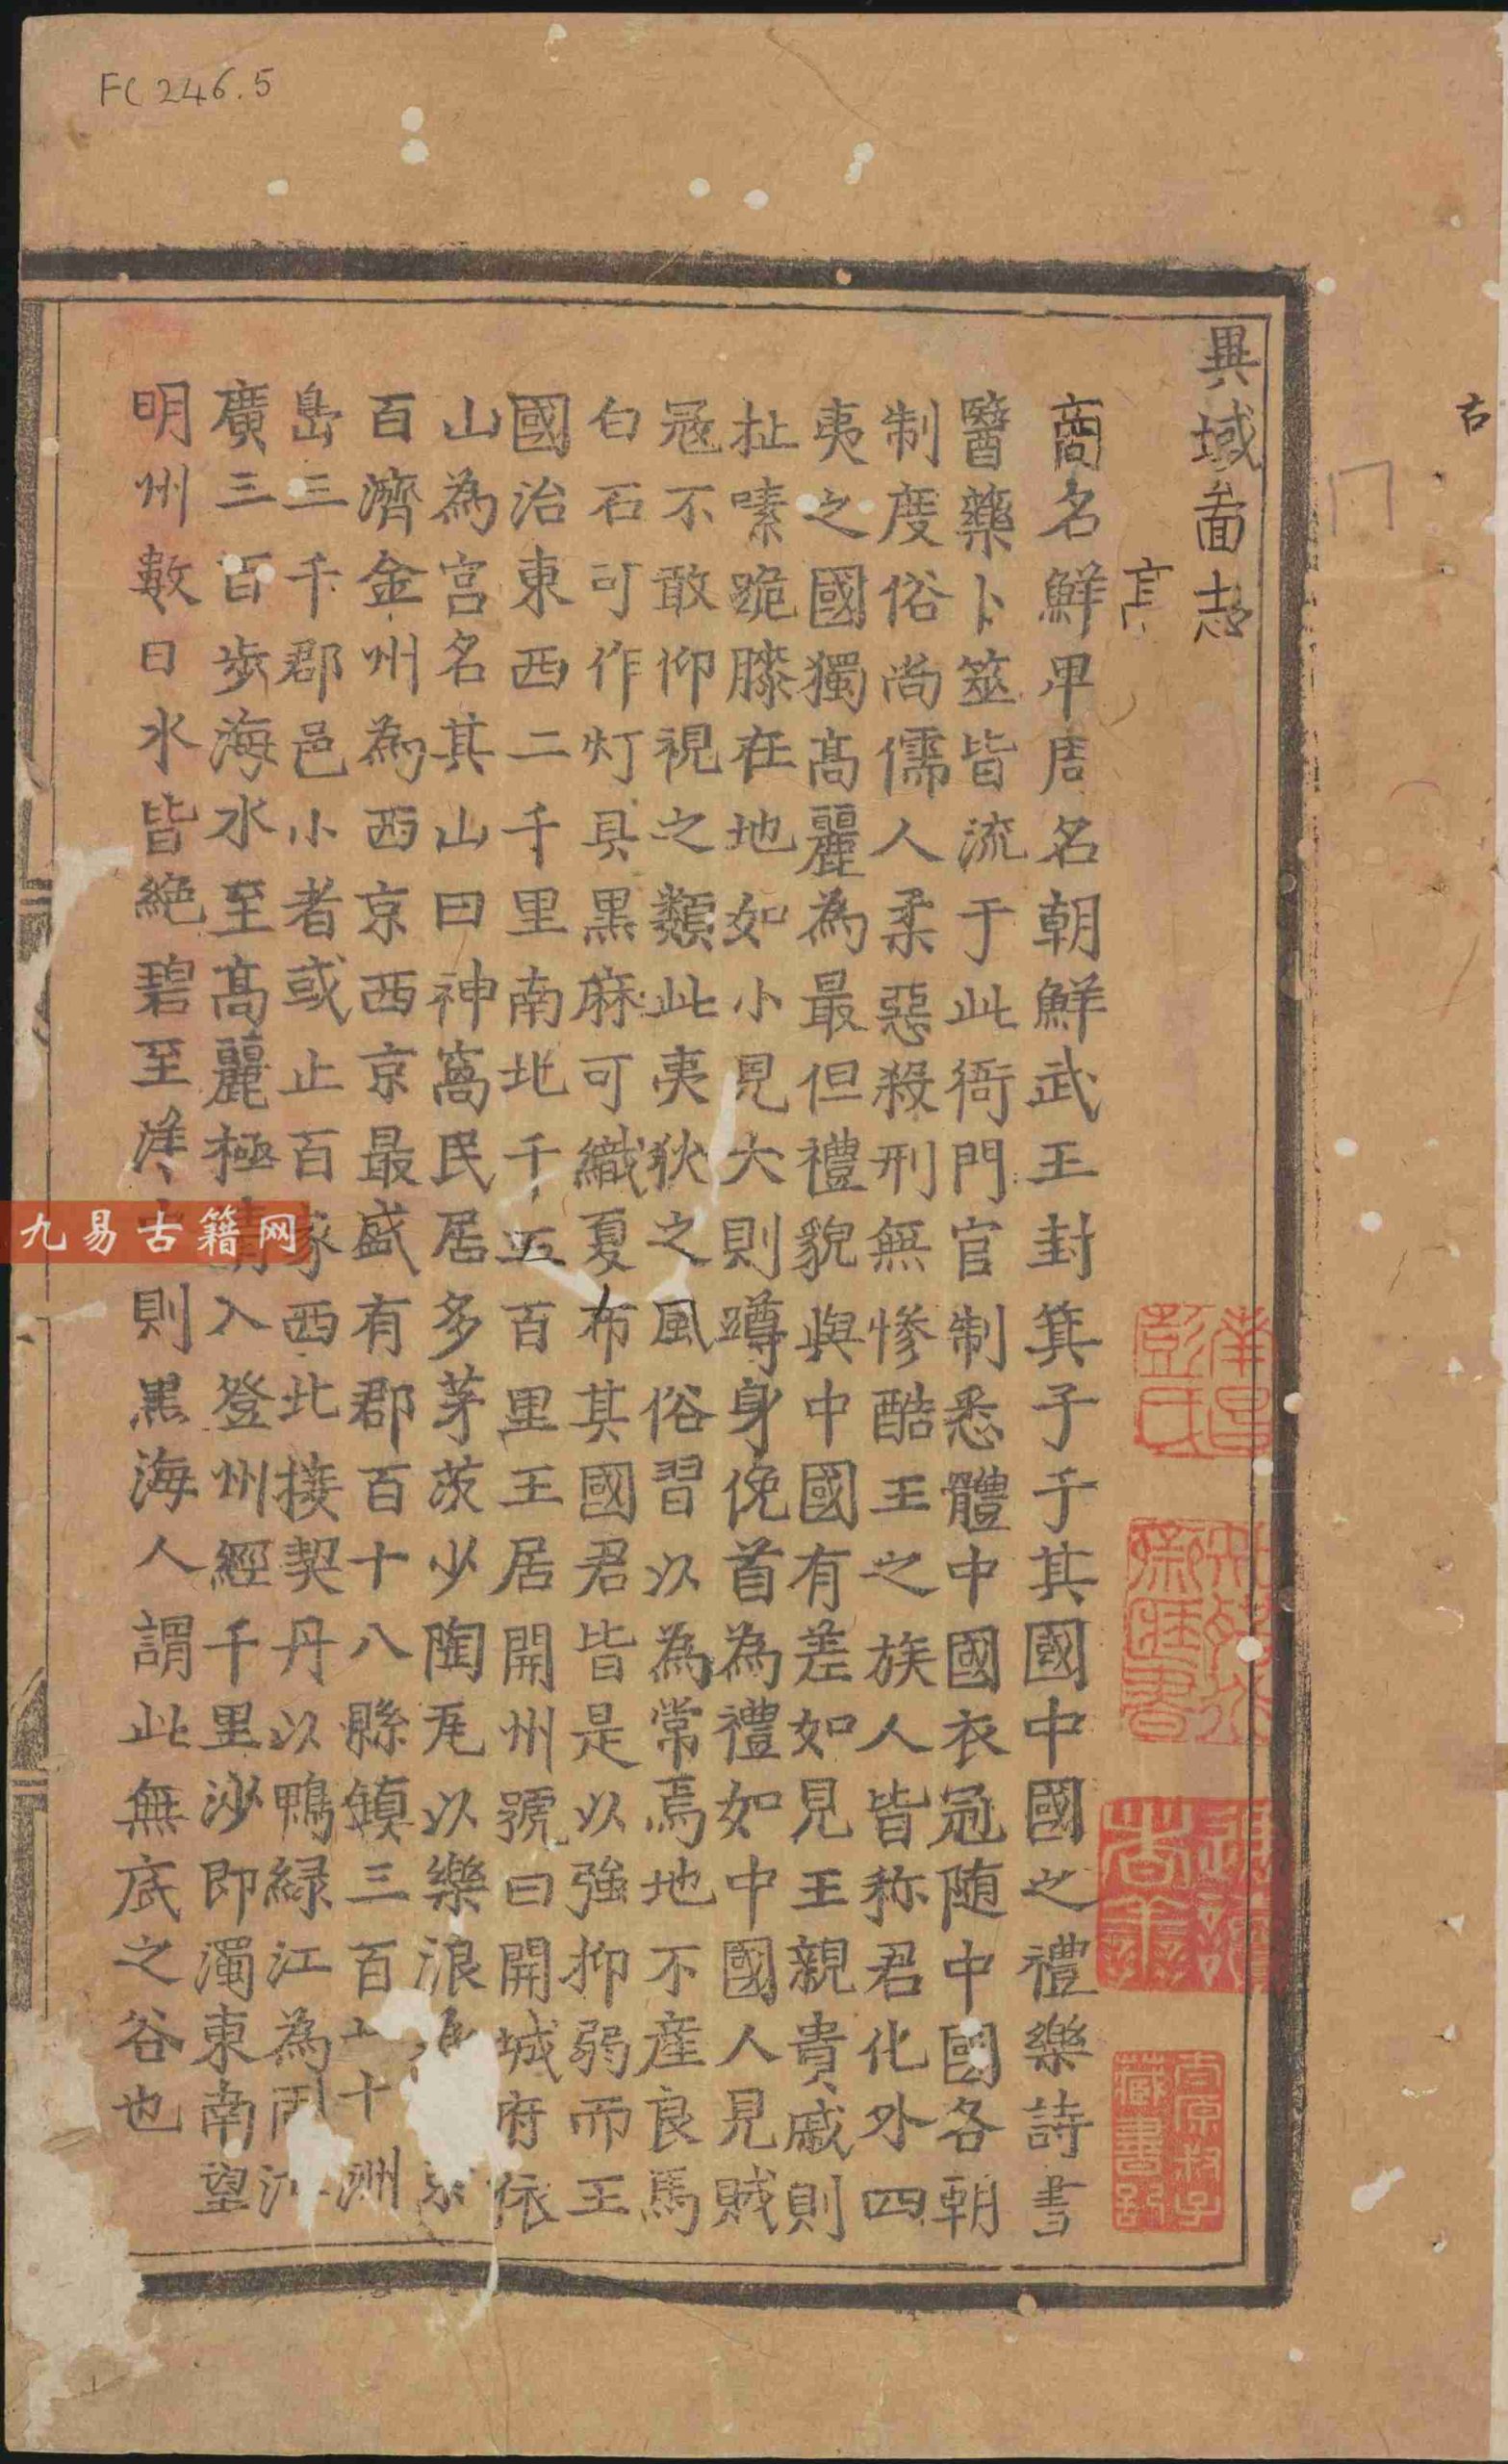 FC 246.5
古
異域啚志
商名鮮卑周名朝鮮武王封箕子于其國中國之禮樂詩書
醫藥卜筮皆流于此衙門官制悉體中國衣冠随中國各朝
制度俗尚儒人柔惡殺刑無慘酷王之族人皆称君化外四
夷之國獨髙麗為最但禮貌與中國有差如見王親貴戚則
扯嗉跪膝在地如小見大則蹲身俛首為禮如中國人見賊
冦不敢仰視之類此夷狄之風俗習以為常焉地不産良馬
白石可作灯具黒麻可織夏布其國君皆是以強抑弱而王
國治東西二千里南北千五百里王居開州號曰開城府依
山為宫名其山曰神窩民居多茅茨少陶瓦以樂浪
百濟金州為西京西京最盛有郡百十八縣鎮三百 十洲
島三千郡邑小者或止百家西北接契丹以鴨緑江為 江
廣三百步海水至髙麗極清入登州經千里沙即濁東南望
明州數日水皆絶碧至洋 則黒海人謂此無底之谷也
彭氏
藏書
九易古籍网